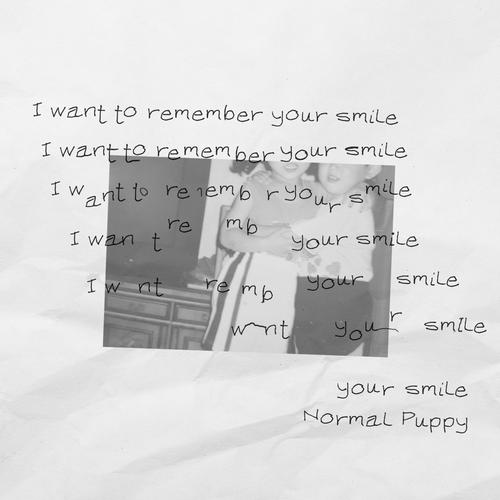 I want to remember your smile
I want to remember your smile
I want to re emb r your smile
I wan t re mb your smile
I w nt re mb your smile
w nt your smile
your smile
Normal Puppy